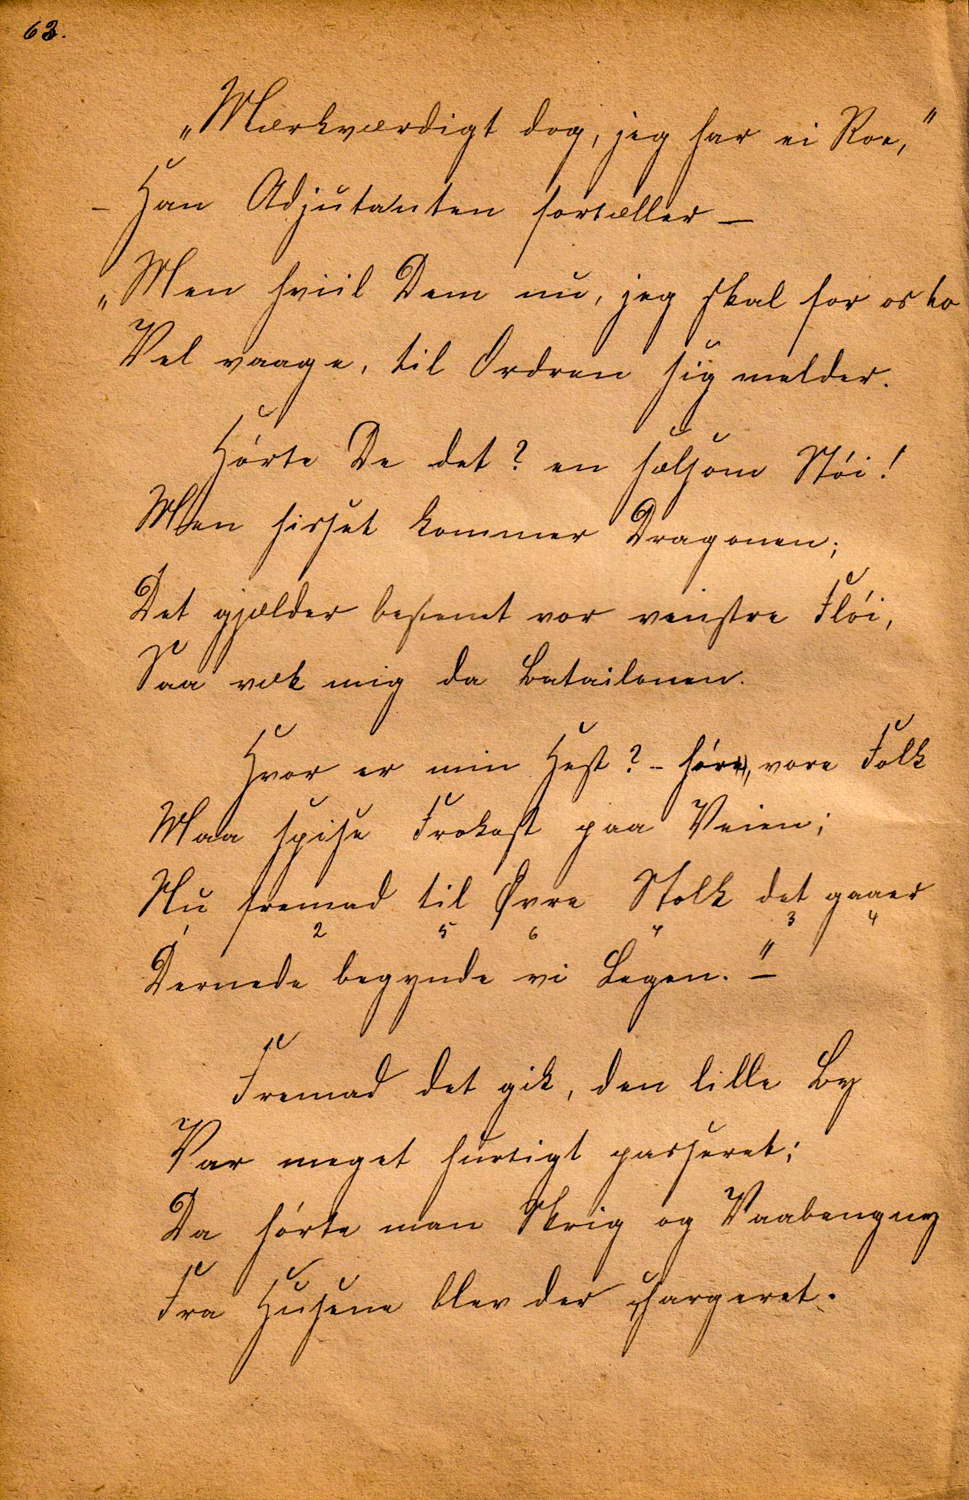 63.
„Mærkværdigt dog, jeg har ei Roe,"
– Han Adjutanten fortæller –
„Men hviil Dem nu, jeg skal for os to
Vel vaage, til Ordren sig melder.
Hörte De det? en sælsom Stöi!
Men hisset kommer Dragonen;
Det gjælder bestemt vor venstre Flöi,
Saa væk mig da Batailonen.
Hvor er min Hest? – hör, vore Folk
Maa spise Frokost paa Veien;
Nu fremad til Øvre Stolk det gaaer
1 2 5 6 7 3 4
Dernede begynde vi Legen." –
Fremad det gik, den lille By
Var meget hurtigt passeret;
Da hörte man Skrig og Vaabengny
Fra Husene blev der chargeret.